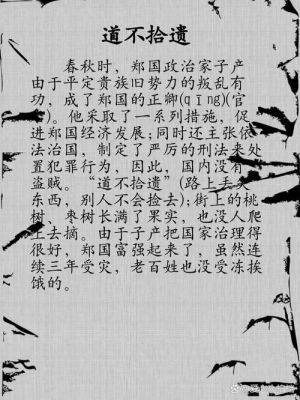 道不拾遗
春秋时，郑国政治家子产
由于平定贵族旧势力的叛乱有
功，成了郑国的正卿(qīng)(官
。他采取了一系列措施，促
进郑国经济发展;同时还主张依
法治国，制定了严厉的刑法来处
置犯罪行为，因此，国内没有
盗贼。“道不拾遗”(路上丢失
东西，别人不会捡去);街上的桃
树、枣树长满了果实，也没人爬
上去摘。由于子产把国家治理得
很好，郑国富强起来了，虽然连
续三年受灾，老百姓也没受冻挨
饿的。